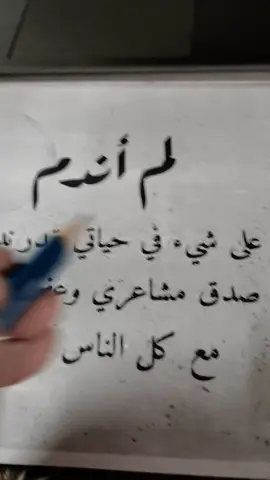 لم أندم
على شيء في حياتي
صدق مشاعري
مع كل الناس